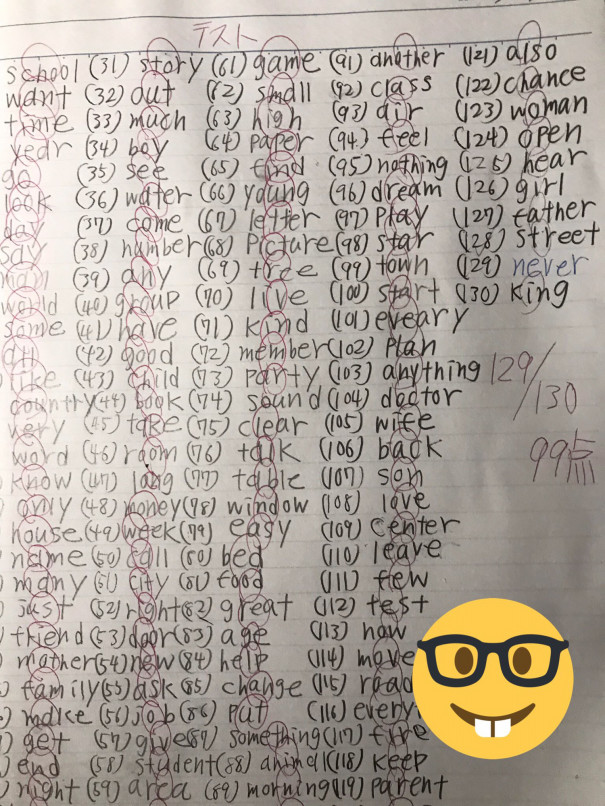 テスト
school (31) story (61) game (91) another (121) also
want (32) out (62) small (92) class (122) chance
time (33) much (63) high (93) air (123) woman
year (34) boy (64) paper (94) feel (124) open
go (35) see (65) find (95) nothing (125) hear
look (36) water (66) young (96) dream (126) girl
day (37) come (67) letter (97) play (127) father
say (38) number (68) picture (98) star (128) street
man (39) any (69) tree (99) town (129) never
world (40) group (70) live (100) start (130) king
same (41) have (71) kind (101) eveary
all (42) good (72) member (102) plan
like (43) child (73) party (103) anything 129/130
country (44) book (74) sound (104) doctor
very (45) take (75) clear (105) wife
word (46) room (76) talk (106) back 99点
know (47) long (77) table (107) son
only (48) money (78) window (108) love
house (49) week (79) easy (109) center
name (50) call (80) bed (110) leave
many (51) city (81) food (111) few
just (52) right (82) great (112) test
friend (53) door (83) age (113) now
mather (54) new (84) help (114) move
family (55) ask (85) change (115) road
make (56) job (86) put (116)
get (57) give (87) something (117) fire
end (58) student (88) animal (118) keep
night (59) area (89) morning (119) parent